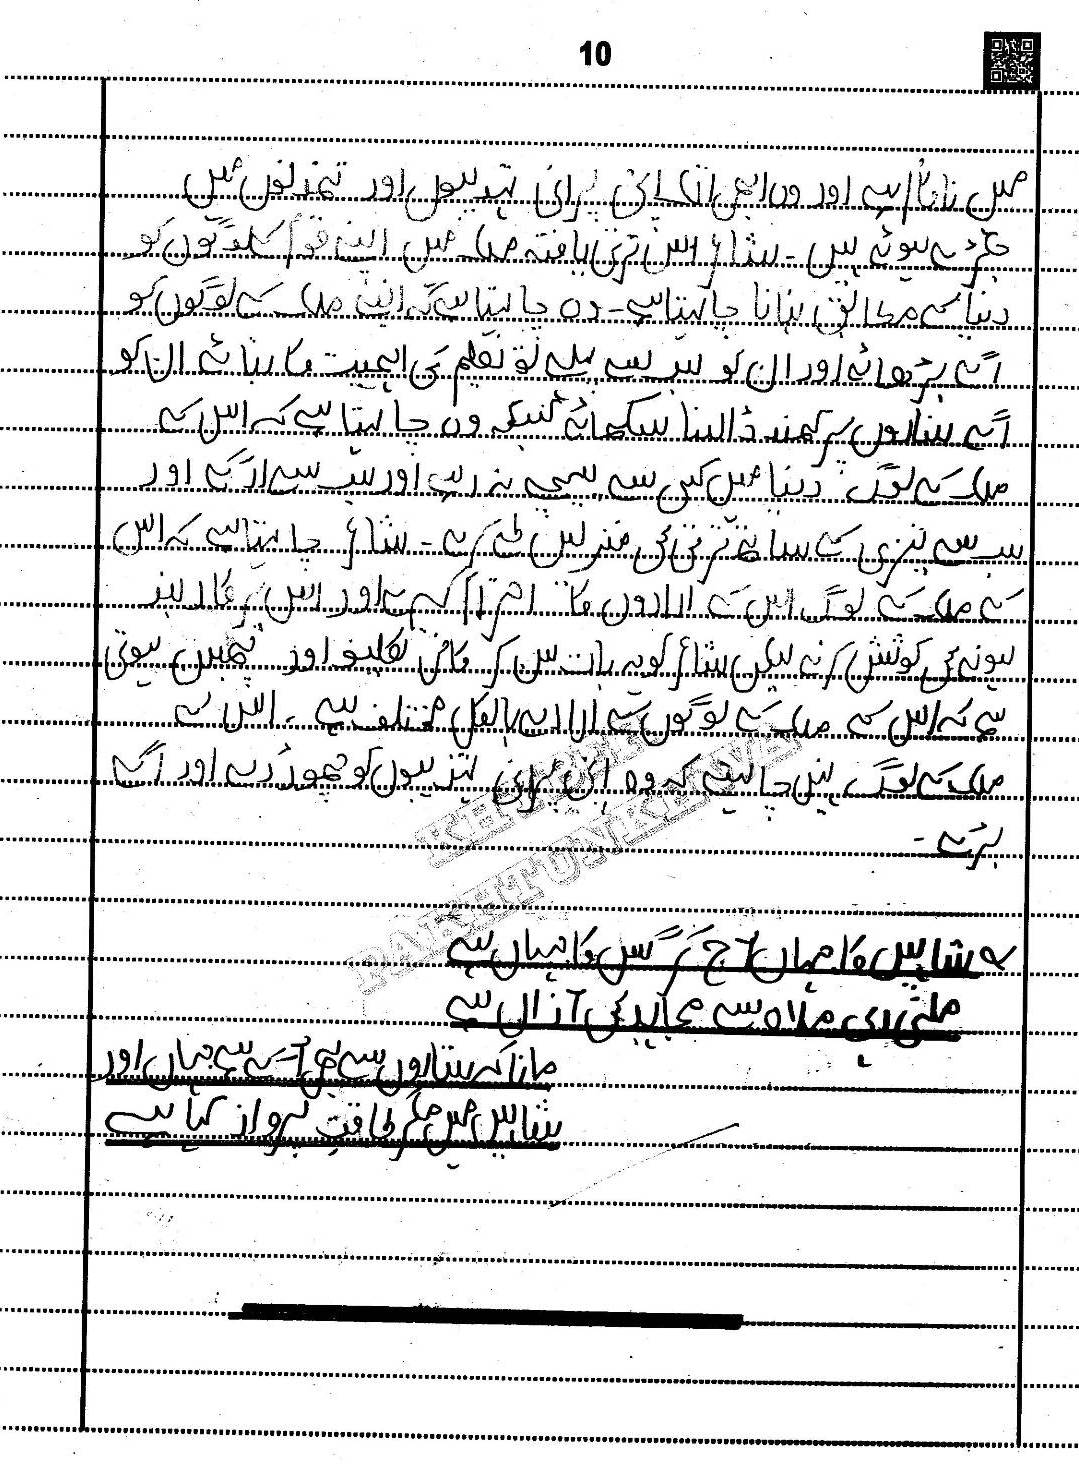 10
میں ناکام ہے اور وہ ابھی تک اپنی پرانی تہذیبوں اور تمدنوں میں
جکڑے ہوئے ہیں - شاعر اس ترقی یافتہ ملک میں اپنے قوم کے لوگوں کو
دنیا کے مطابق بنانا چاہتا ہے - وہ چاہتا ہے کہ اپنے ملک کے لوگوں کو
آگے بڑھائے اور ان کو سب سے پہلے تو تعلیم کی اہمیت کا بتائے ان کو
آگے ستاروں پر کمند ڈالنا سکھائے کیونکہ وہ چاہتا ہے کہ اس کے
ملک کے لوگ دنیا میں کسی سے پیچھے نہ رہے اور سب سے آگے اور
سب سے تیزی کے ساتھ ترقی کی منزلیں طے کرے - شاعر چاہتا ہے کہ اس
کے ملک کے لوگ اس کے ارادوں کا احترام کرے اور اس پر کاربند
ہونے کی کوشش کرے لیکن شاعر کو یہ بات سن کر کافی تکلیف اور ہوتی
ہے کہ اس کے ملک کے لوگوں کے ارادے بالکل مختلف ہے - اس کے
ملک کے لوگ نہیں چاہتے کہ وہ اپنی پرانی تہذیبوں کو چھوڑ دے اور آگے
بڑھے -
KHYBER
PAKHTUNKHWA
؎ شاہیں کا جہاں آج کرگس کا جہاں ہے
ملتی ہوئی ملا سے مجاہد کی اذاں ہے
مانا کہ ستاروں سے بھی آگے ہے جہاں اور
شاہیں میں مگر طاقتِ پرواز کہاں ہے